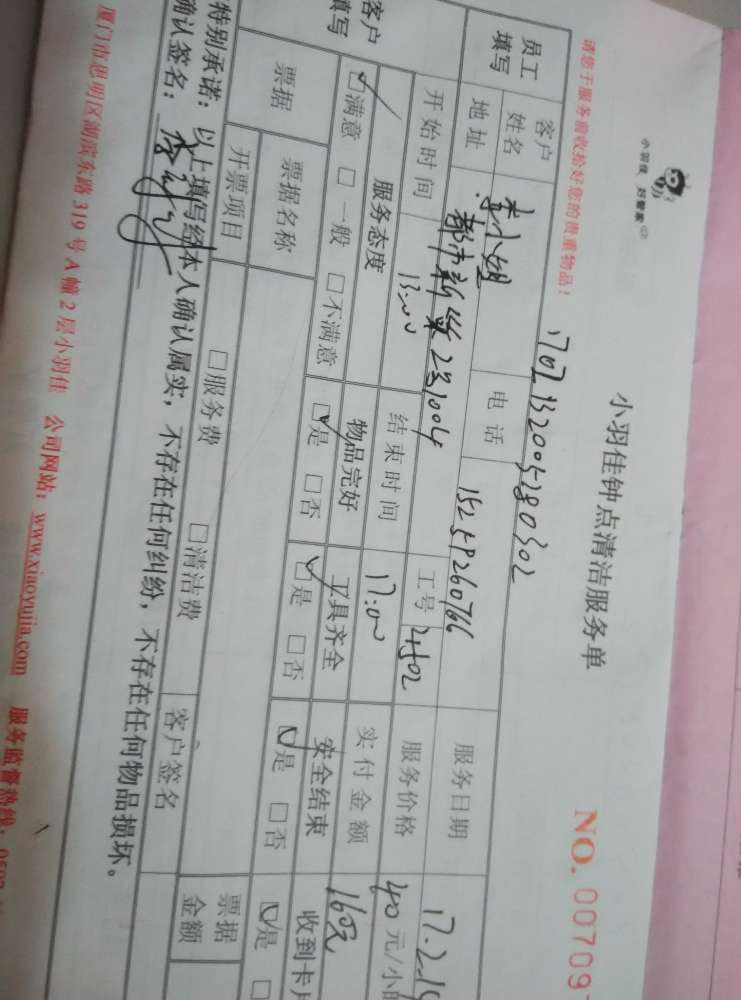 小羽佳 好管家
小羽佳钟点清洁服务单
NO. 007097
请您于服务前收拾好您的贵重物品！
员工填写
客户姓名
小姐
电话
15259260766
服务日期
17.2.19
地址
都市新 2号1004
工号
4502
服务价格
40 元/小时
开始时间
13:00
结束时间
17:00
实付金额
160元
客户填写
服务态度
物品完好
工具齐全
安全结束
收到卡片
☑满意 □一般 □不满意
☑是 □否
☑是 □否
☑是 □否
☑是 □
票据
票据名称
□服务费 □清洁费
票据金额
开票项目
客户签名
特别承诺：以上填写经本人确认属实，不存在任何纠纷，不存在任何物品损坏。
确认签名：
厦门市思明区湖滨东路 319 号 A 幢 2 层小羽佳 公司网站：www.xiaoyujia.com 服务监督热线：0592